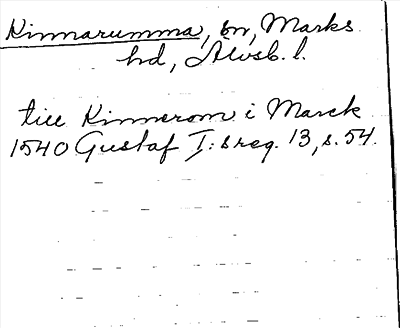 Kinnarumma, sn, Marks
hd, Älvsb. l.
till Kinnerom i Marck
1540 Gustaf I:s reg. 13, s. 54.